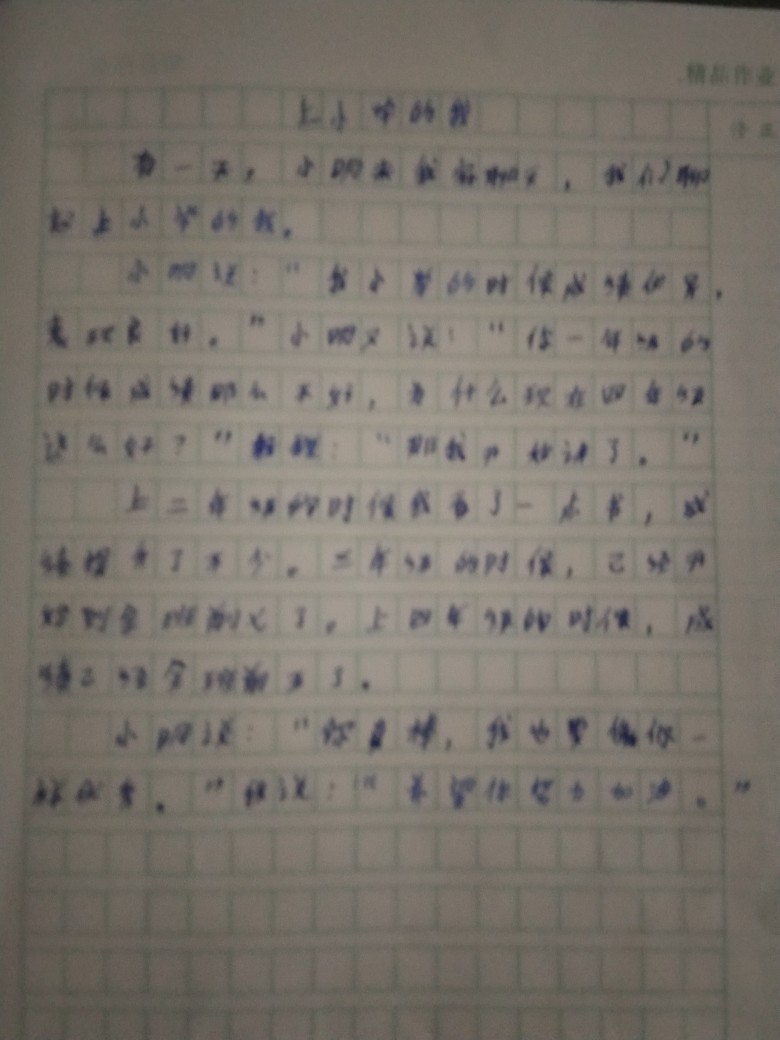 精品作业
上小学的我
有一天，小明来我家聊天，我们聊
起上小学的我。
小明说：“我小学的时候成绩优异，
表现良好。”小明又说：“你一年级的
时候成绩那么不好，为什么现在四年级
这么好？”我说：“那我开始讲了。”
上二年级的时候我看了一点书，成
绩提升了不少。三年级的时候，已经
到全班前 了。上四年级的时候，成
绩已经全班前五了。
小明说：“你真棒，我也要像你一
样优秀。”我说：“希望你努力加油。”